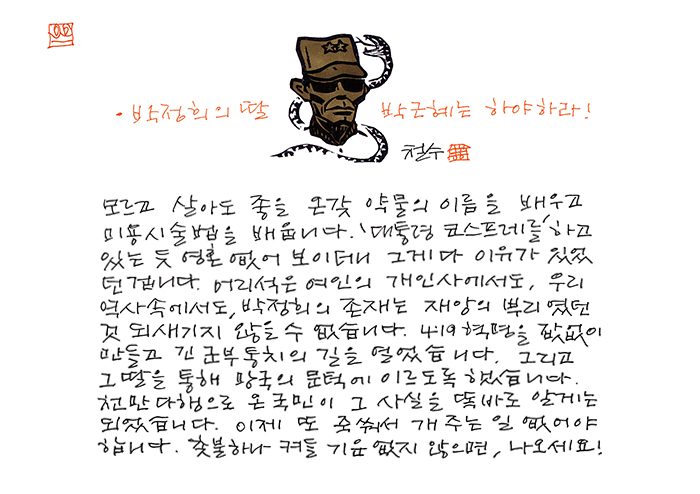 · 박정희의 딸 박근혜는 하야하라!
철수
모르고 살아도 좋을 온갖 약물의 이름을 배우고
미용시술법을 배웁니다. '대통령 코스프레를' 하고
있는 듯 영혼 없어 보이더니 그게 다 이유가 있었
던 겁니다. 어리석은 여인의 개인사에서도, 우리
역사속에서도, 박정희의 존재는 재앙의 뿌리였던
것 되새기지 않을 수 없습니다. 4.19혁명을 값없이
만들고 긴 군부통치의 길을 열었습니다. 그리고
그 딸을 통해 망국의 문턱에 이르도록 했습니다.
천만다행으로 온 국민이 그 사실을 똑바로 알게는
되었습니다. 이제 또 죽 쒀서 개 주는 일 없어야
합니다. 촛불하나 켜들 기운 없지 않으면, 나오세요!